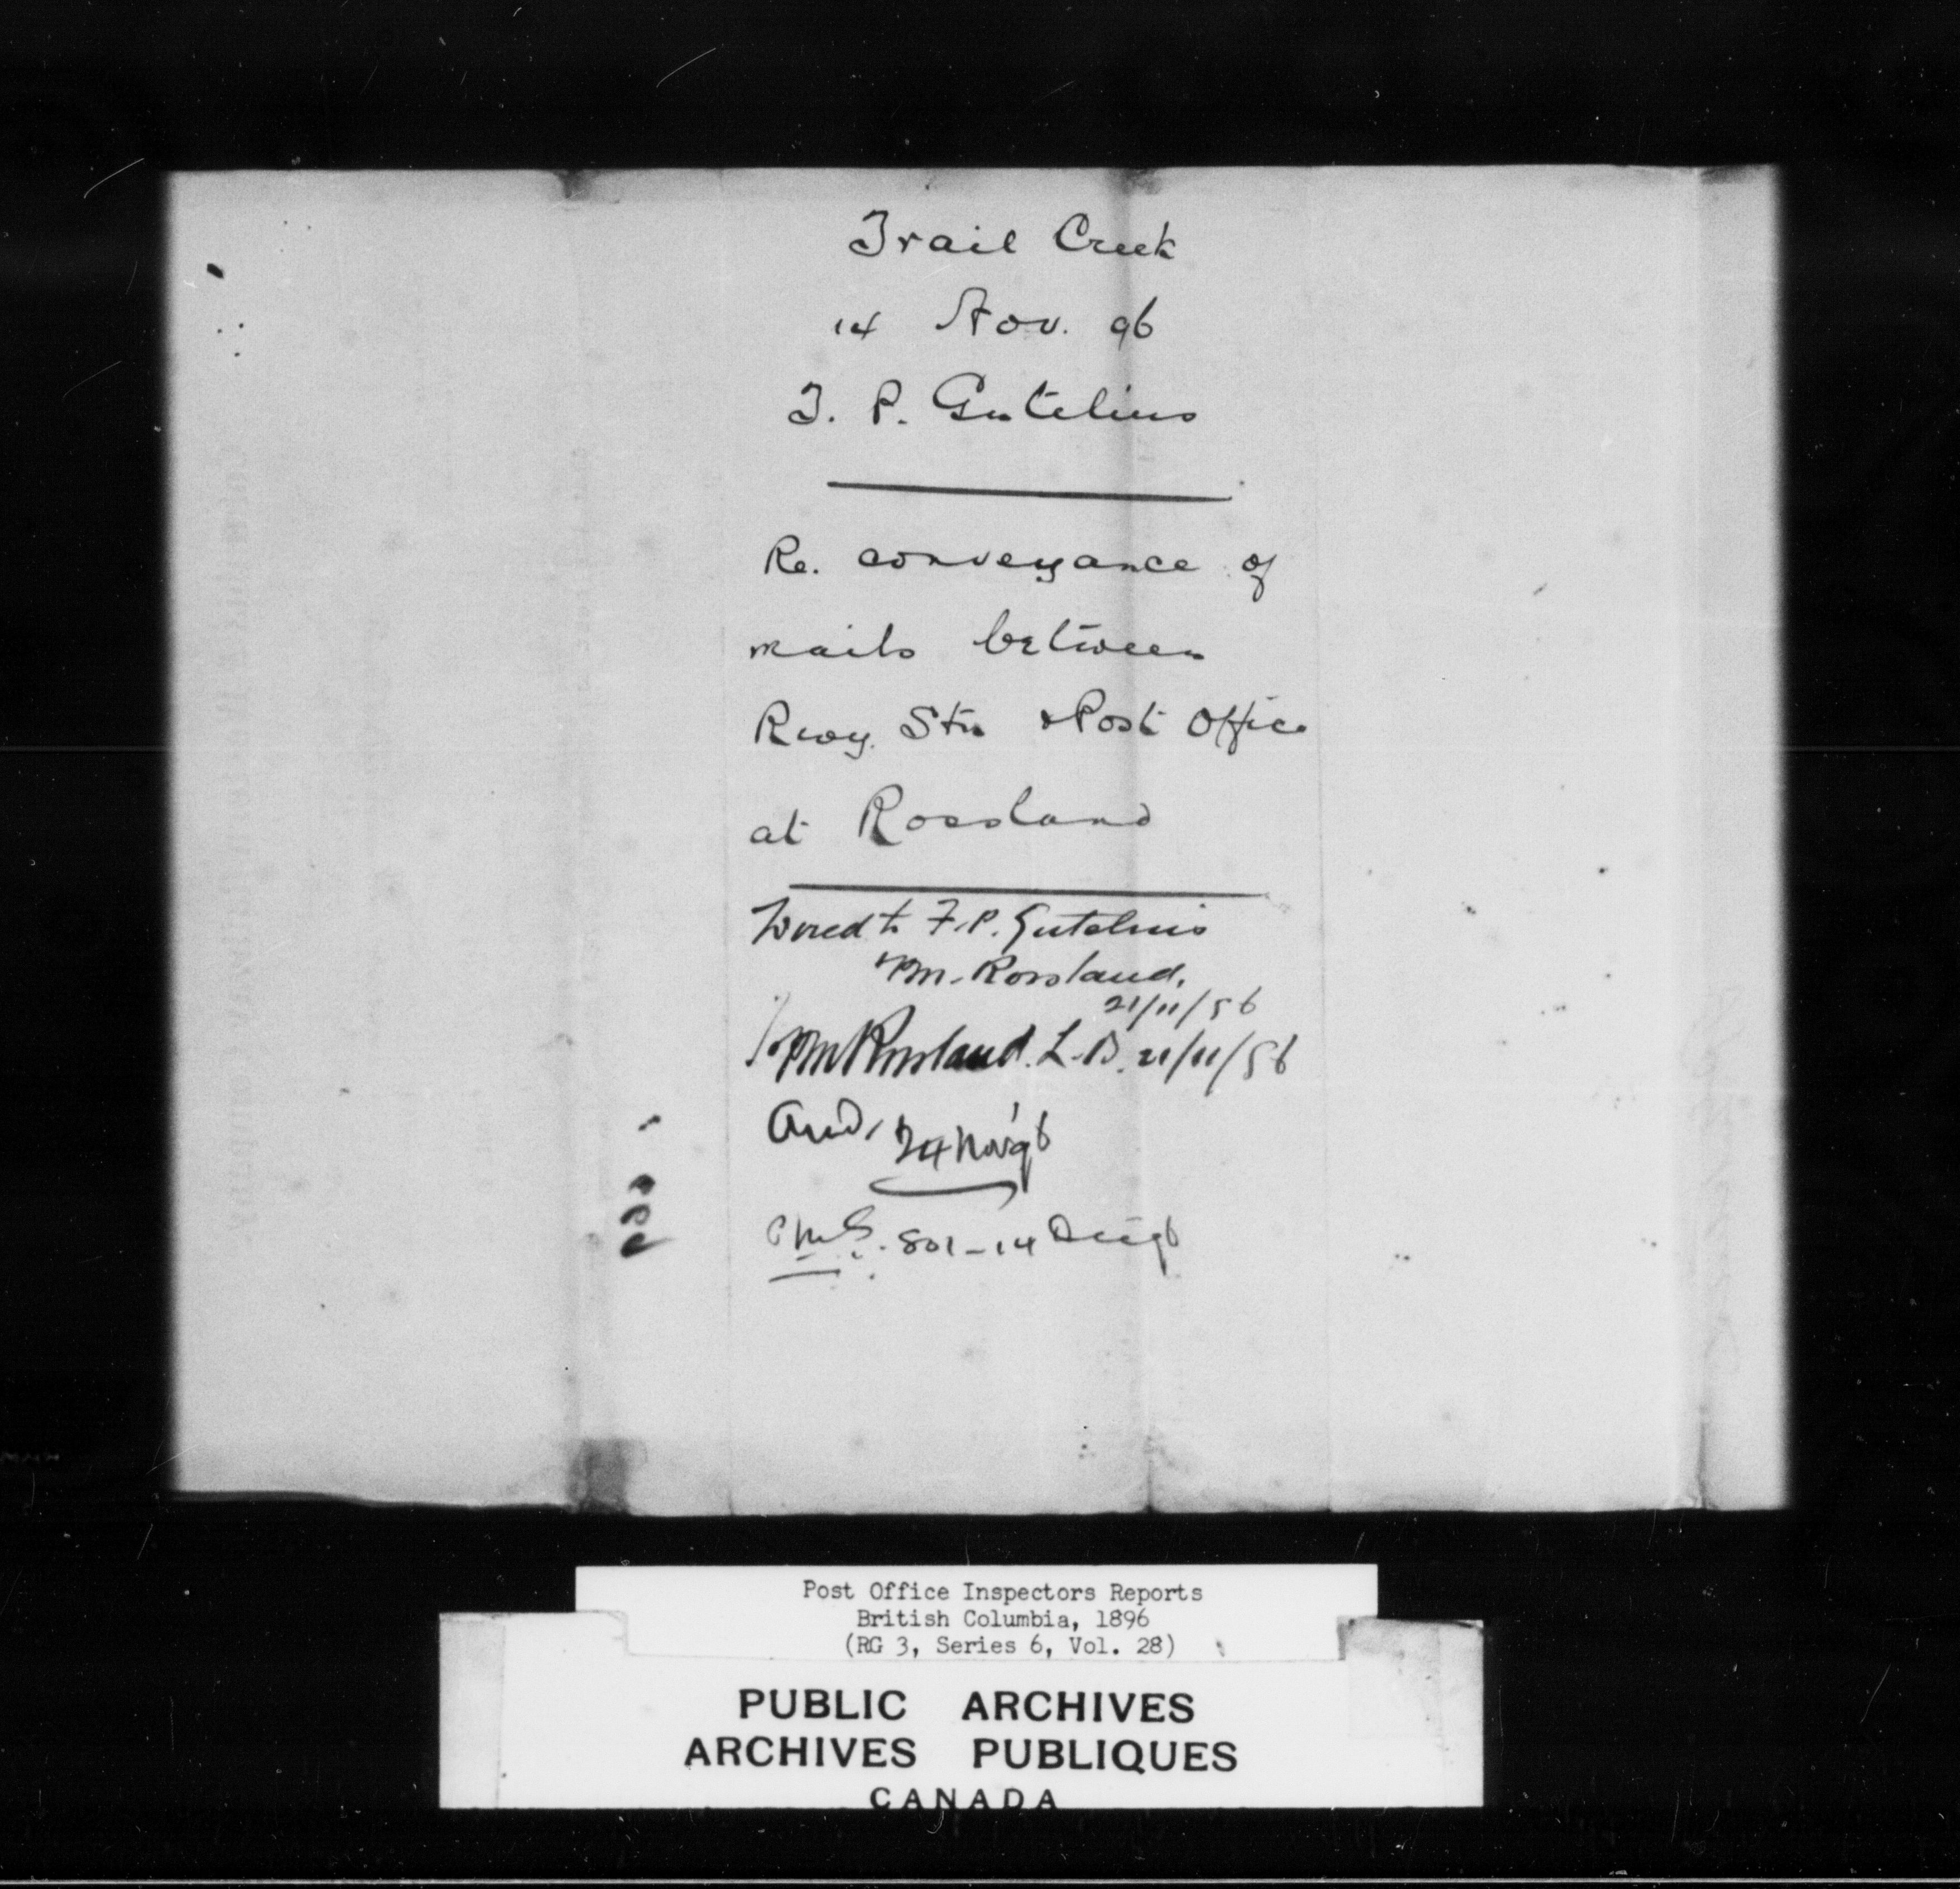 Trail Creek
14 Nov. 96
F. P. Gutelius
Re. conveyance of
mails between
Rwy. Stn & Post Office
at Rossland
Wired to F. P. Gutelius
& PM. Rossland.
21/11/96
PM Rossland. L.B. 21/11/96
Ansd, 24 Nov 96
P M G. 801-14 Dec 96
Post Office Inspectors Reports
British Columbia, 1896
(RG 3, Series 6, Vol. 28)
PUBLIC ARCHIVES
ARCHIVES PUBLIQUES
CANADA